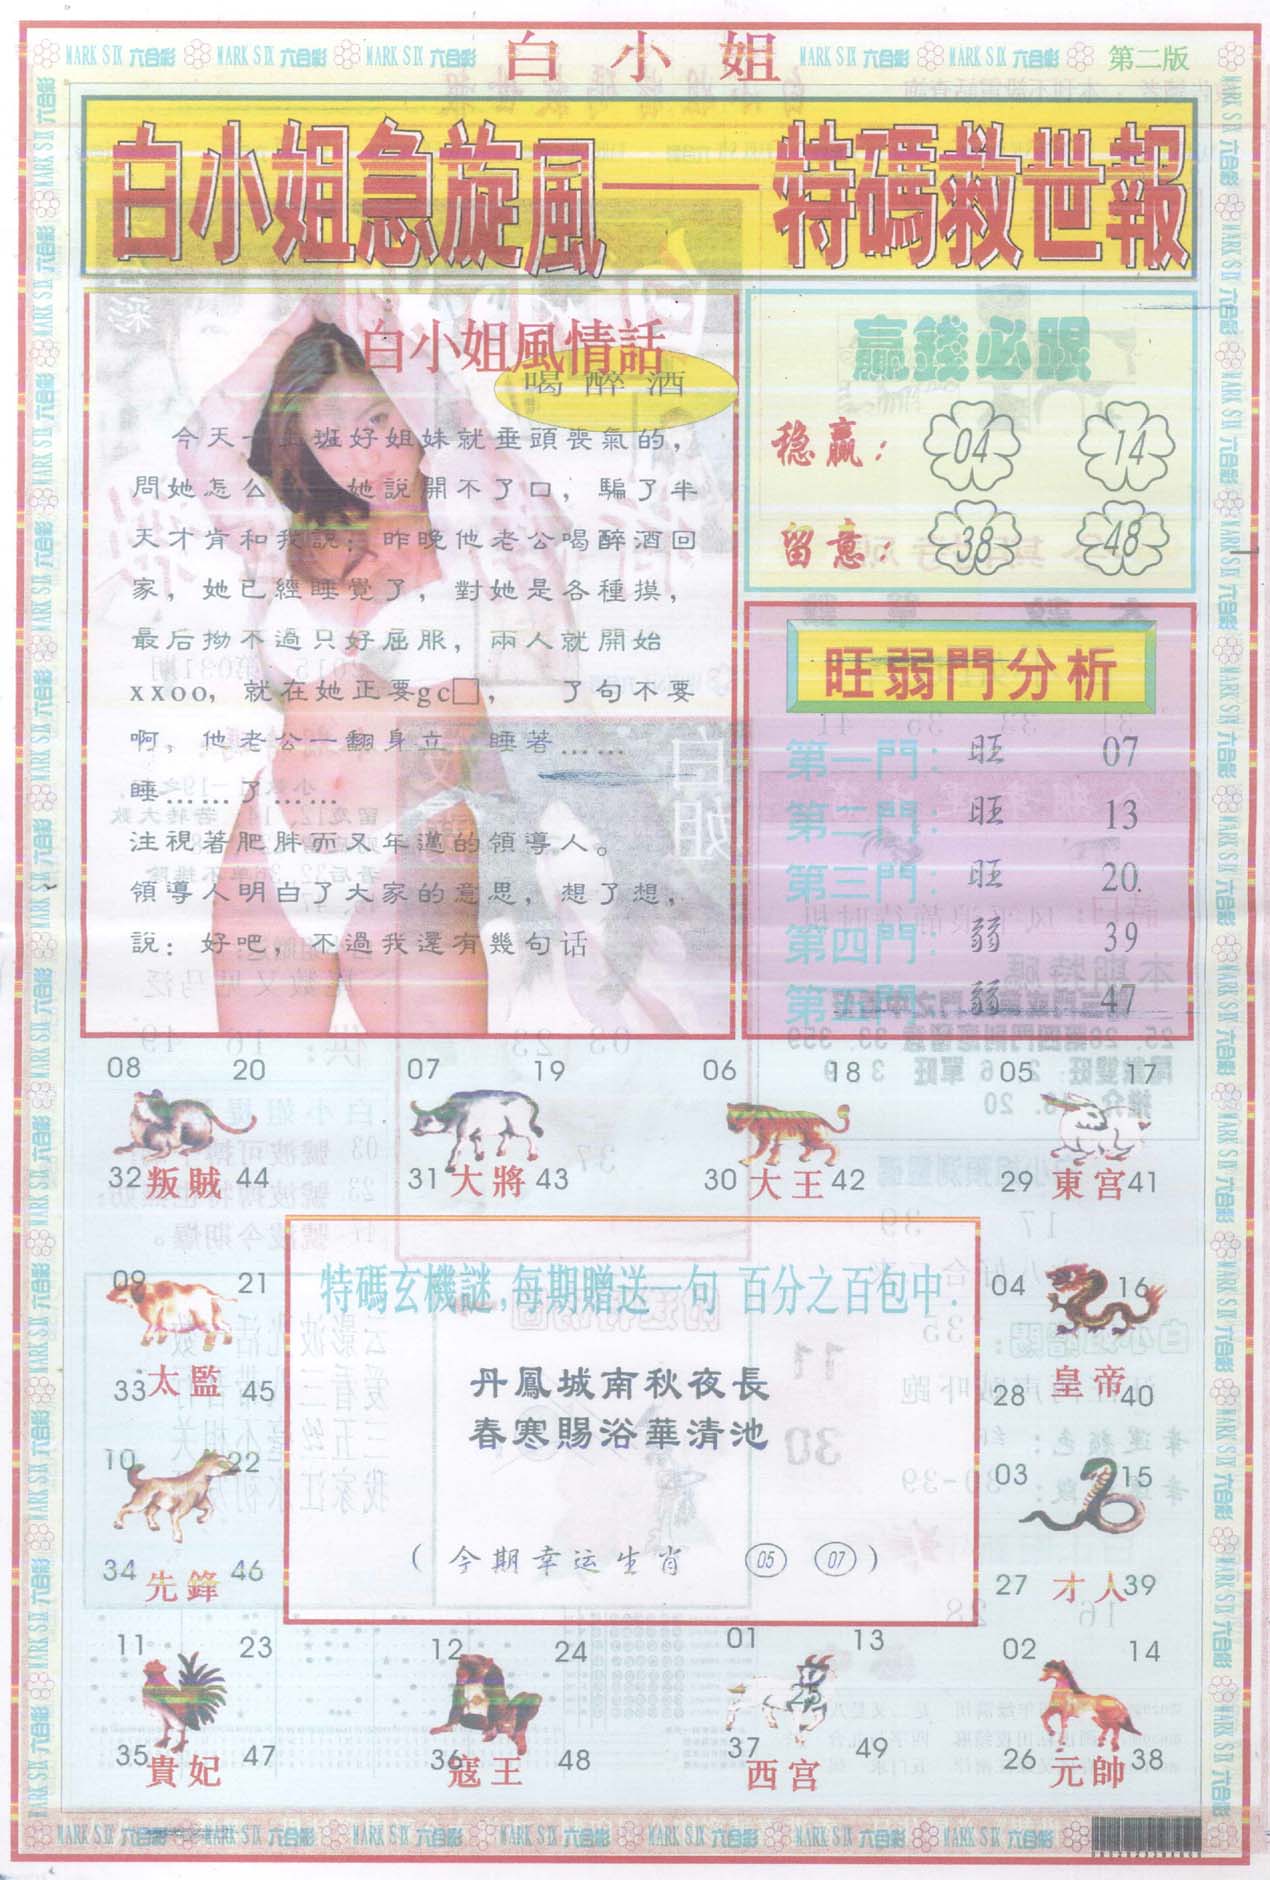 MARK SIX 六合彩 MARK SIX 六合彩 MARK SIX 六合彩 白小姐 MARK SIX 六合彩 MARK SIX 六合彩 第二版
白小姐急旋風——特碼救世報
白小姐風情話
喝醉酒
今天一上班好姐妹就垂頭喪氣的，
問她怎么 她說開不了口，騙了半
天才肯和我說：昨晚他老公喝醉酒回
家，她已經睡覺了，對她是各種摸，
最后拗不過只好屈服，兩人就開始
xxoo，就在她正要gc□， 了句不要
啊，他老公一翻身立 睡著……
睡……了……
注視著肥胖而又年邁的領導人。
領導人明白了大家的意思，想了想，
說：好吧，不過我還有幾句话
贏錢必跟
穏贏： 04 14
留意： 38 48
旺弱門分析
第一門： 旺 07
第二門： 旺 13
第三門： 旺 20.
第四門： 弱 39
第五門： 弱 47
08 20 07 19 06 18 05 17
32 叛賊 44 31 大將 43 30 大王 42 29 東宫 41
09 21
33 太監 45
10 22
34 先鋒 46
特碼玄機謎,每期贈送一句 百分之百包中.
丹鳳城南秋夜長
春寒賜浴華清池
（今期幸运生肖 05 07）
04 16
28 皇帝 40
03 15
27 才人 39
11 23 12 24 01 13 02 14
25
35 貴妃 47 36 寇王 48 37 西宫 49 26 元帥 38
MARK SIX 六合彩 MARK SIX 六合彩 MARK SIX 六合彩 MARK SIX 六合彩 MARK SIX 六合彩 MARK SIX 六合彩 MARK SIX 六合彩